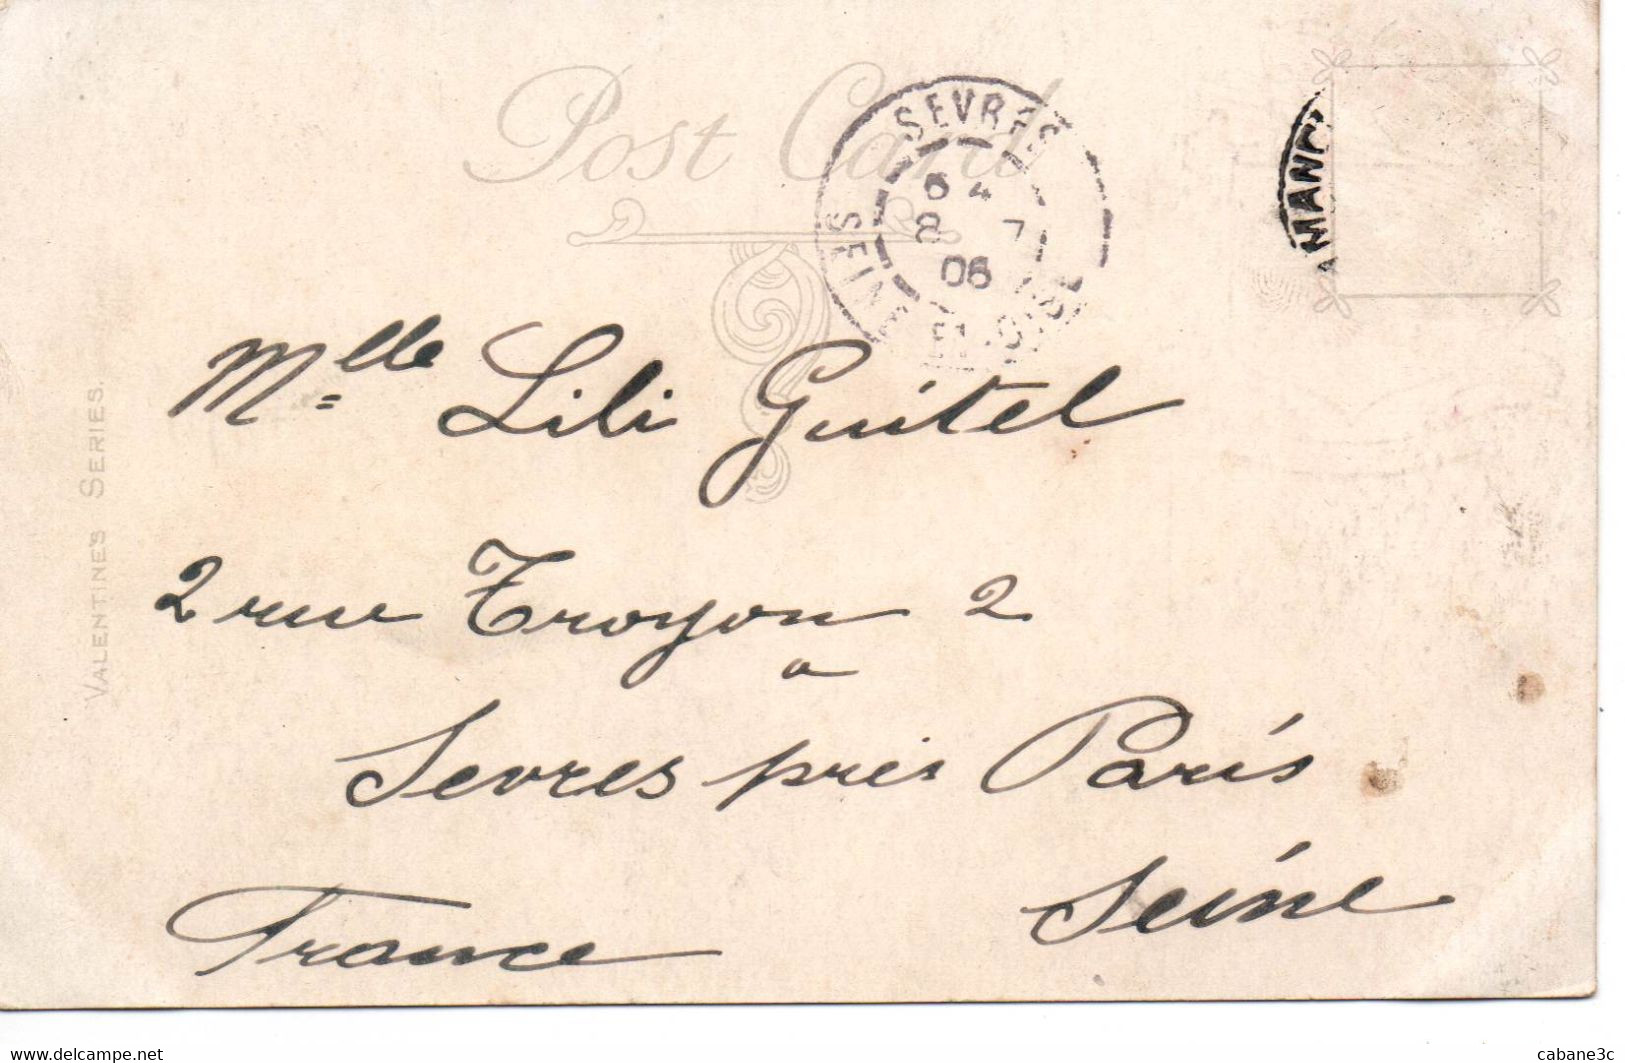 Post Card
SEVRES
6 4
8 7
06
SEINE ET OISE
MANC
VALENTINE'S SERIES.
Mlle Lili Guitel
2 rue Troyon 2
a
Sevres près Paris
Seine
France
www.delcampe.net
cabane3c